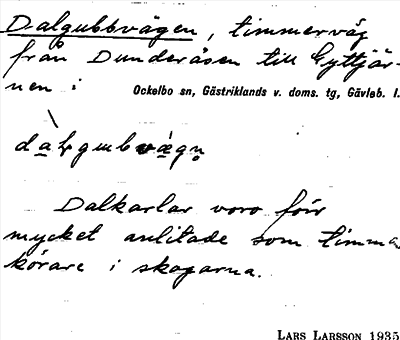 Dalgubbvägen, timmerväg
från Dunderåsen till Gyttjär-
nen i Ockelbo sn, Gästriklands v. doms. tg, Gävleb. l.
Dalkarlar voro förr
mycket anlitade som timmer
körare i skogarna.
LARS LARSSON 1935